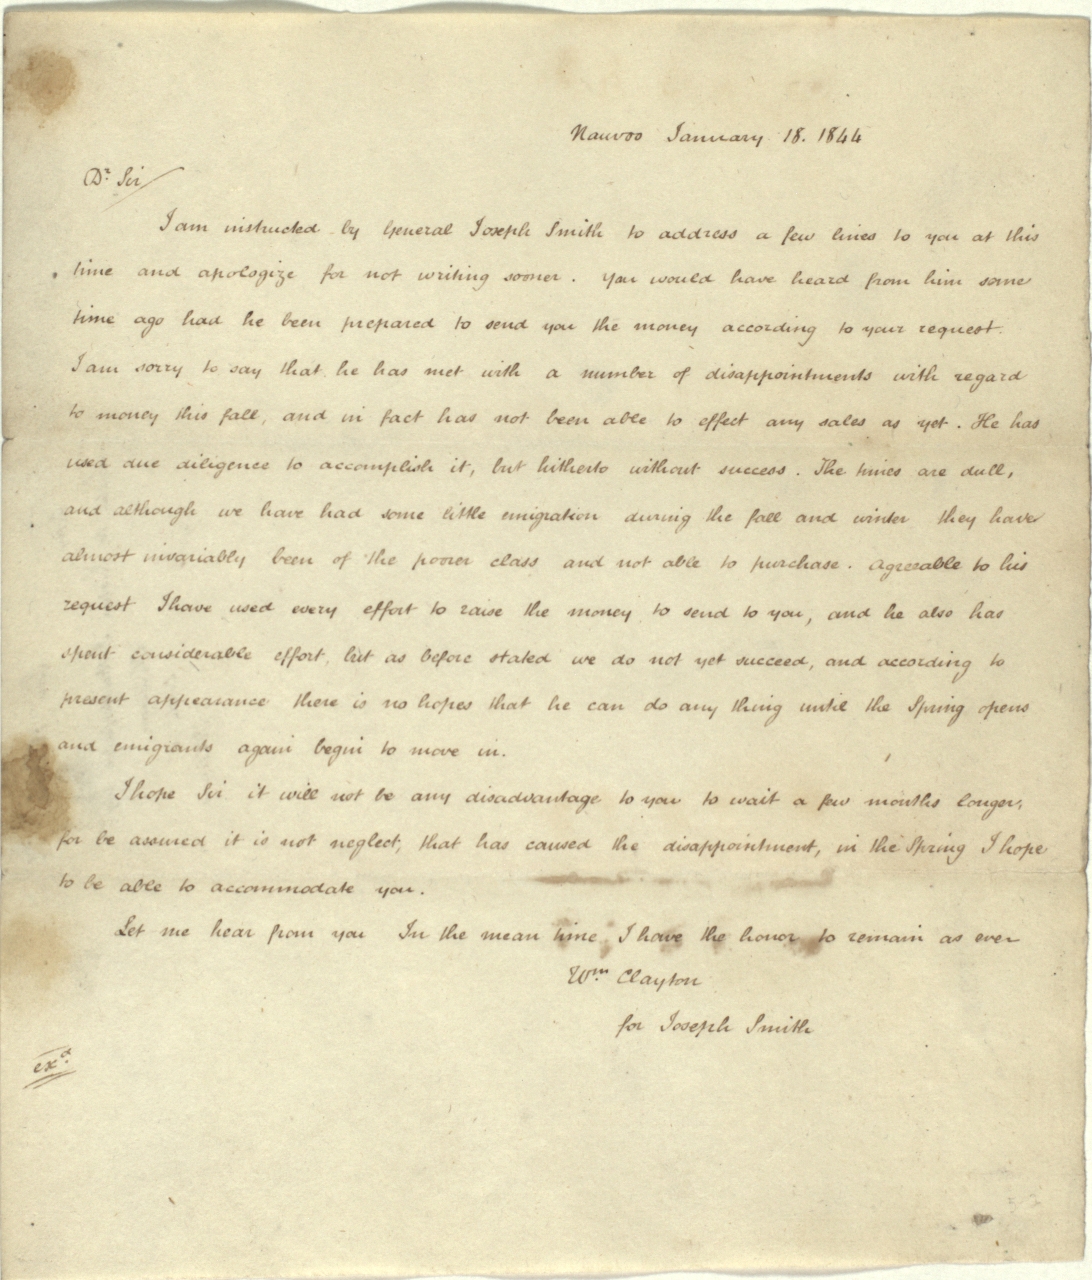 Nauvoo January 18. 1844
Dr Sir
I am instructed by General Joseph Smith to address a few lines to you at this
time and apologize for not writing sooner. You would have heard from him some
time ago had he been prepared to send you the money according to your request.
I am sorry to say that he has met with a number of disappointments with regard
to money this fall, and in fact has not been able to effect any sales as yet. He has
used due diligence to accomplish it, but hitherto without success. The times are dull,
and although we have had some little emigration during the fall and winter they have
almost invariably been of the poorer class and not able to purchase. Agreeable to his
request I have used every effort to raise the money to send to you, and he also has
spent considerable effort, but as before stated we do not yet succeed, and according to
present appearance there is no hopes that he can do any thing until the Spring opens
and emigrants again begin to move in.
I hope Sir it will not be any disadvantage to you to wait a few months longer,
for be assured it is not neglect, that has caused the disappointment, in the Spring I hope
to be able to accommodate you.
Let me hear from you In the mean time, I have the honor to remain as ever
Wm Clayton
for Joseph Smith
exd.